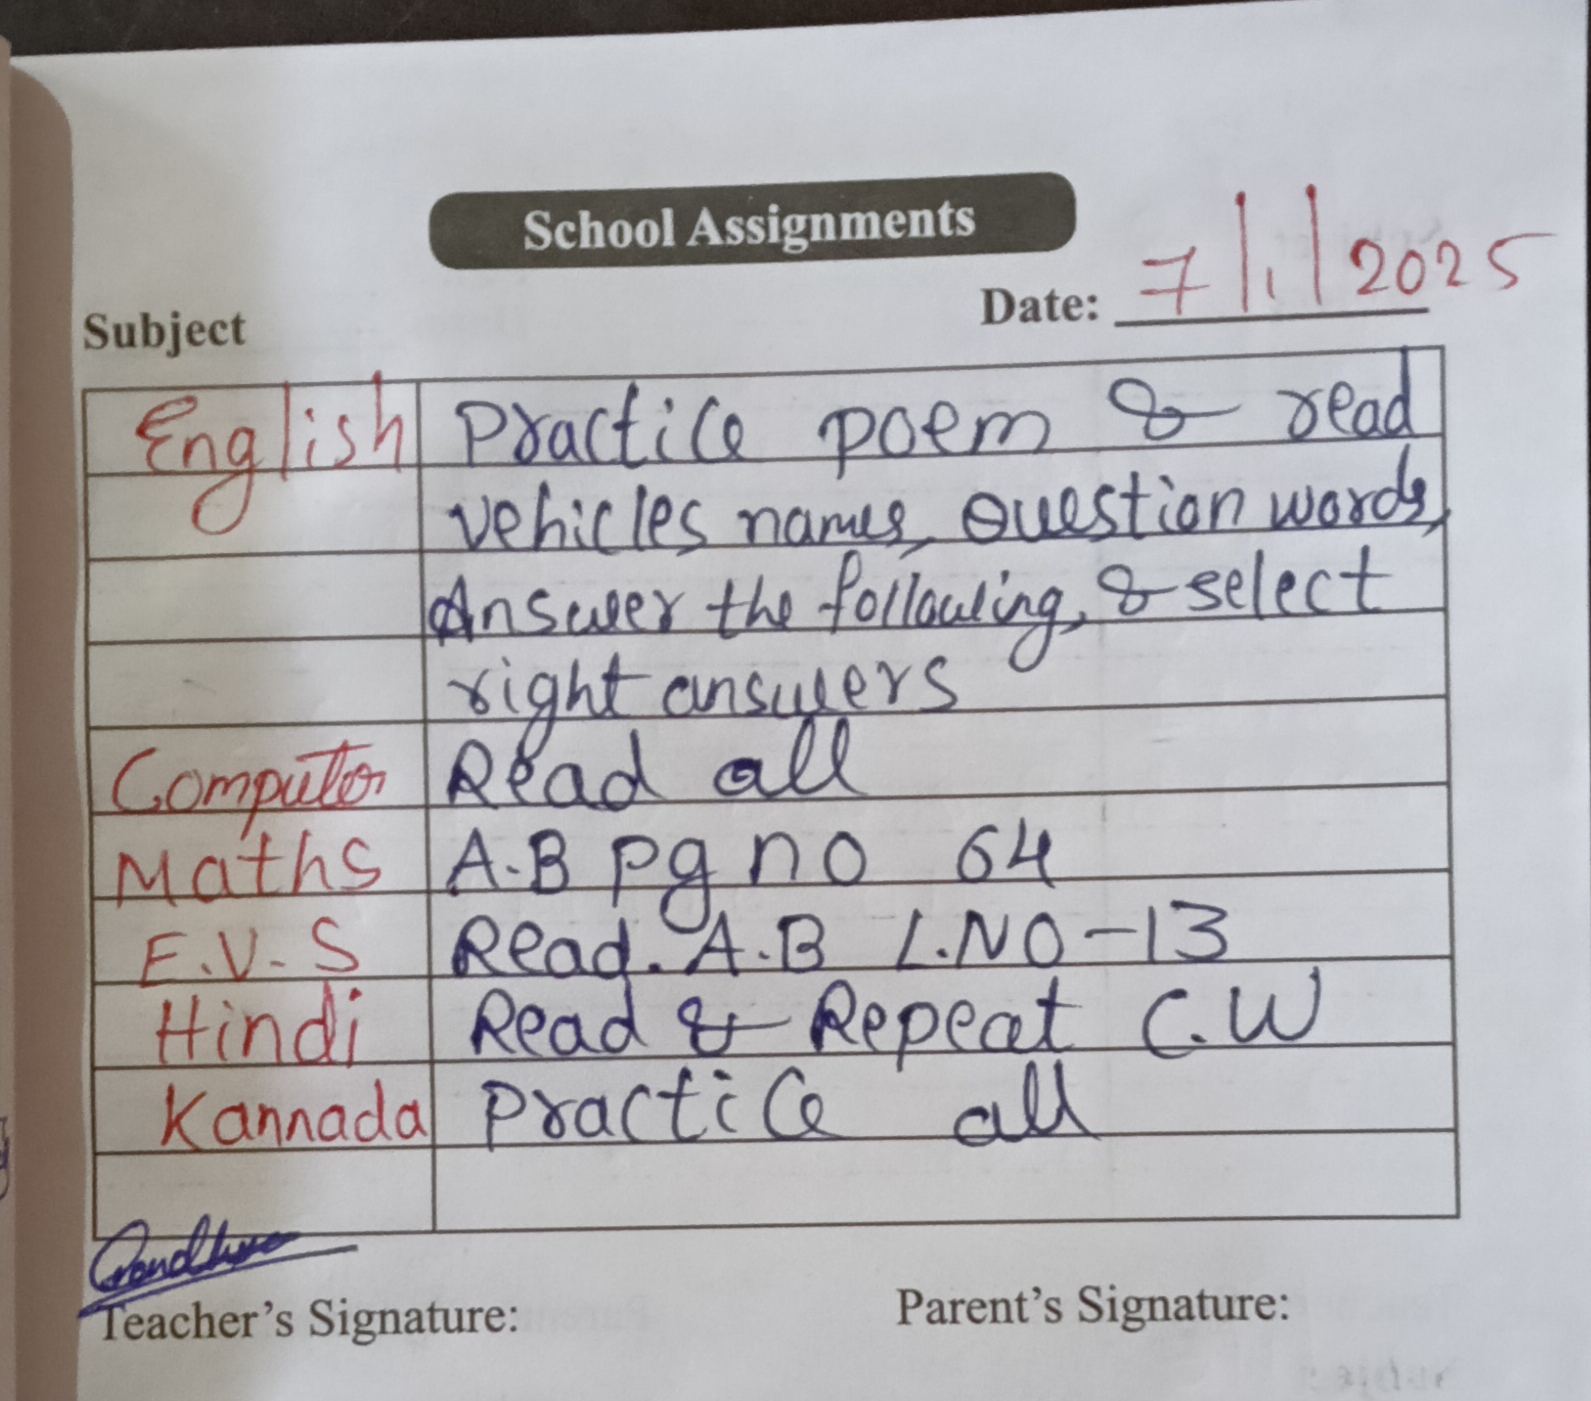 School Assignments
Date: 7/1/2025
Subject
English Practice poem & read
vehicles names, Question words,
Answer the following, & select
right answers
Computer Read all
Maths A.B pg no 64
E.V.S Read. A.B L.NO-13
Hindi Read & Repeat C.W
Kannada Practice all
Teacher's Signature: Parent's Signature: